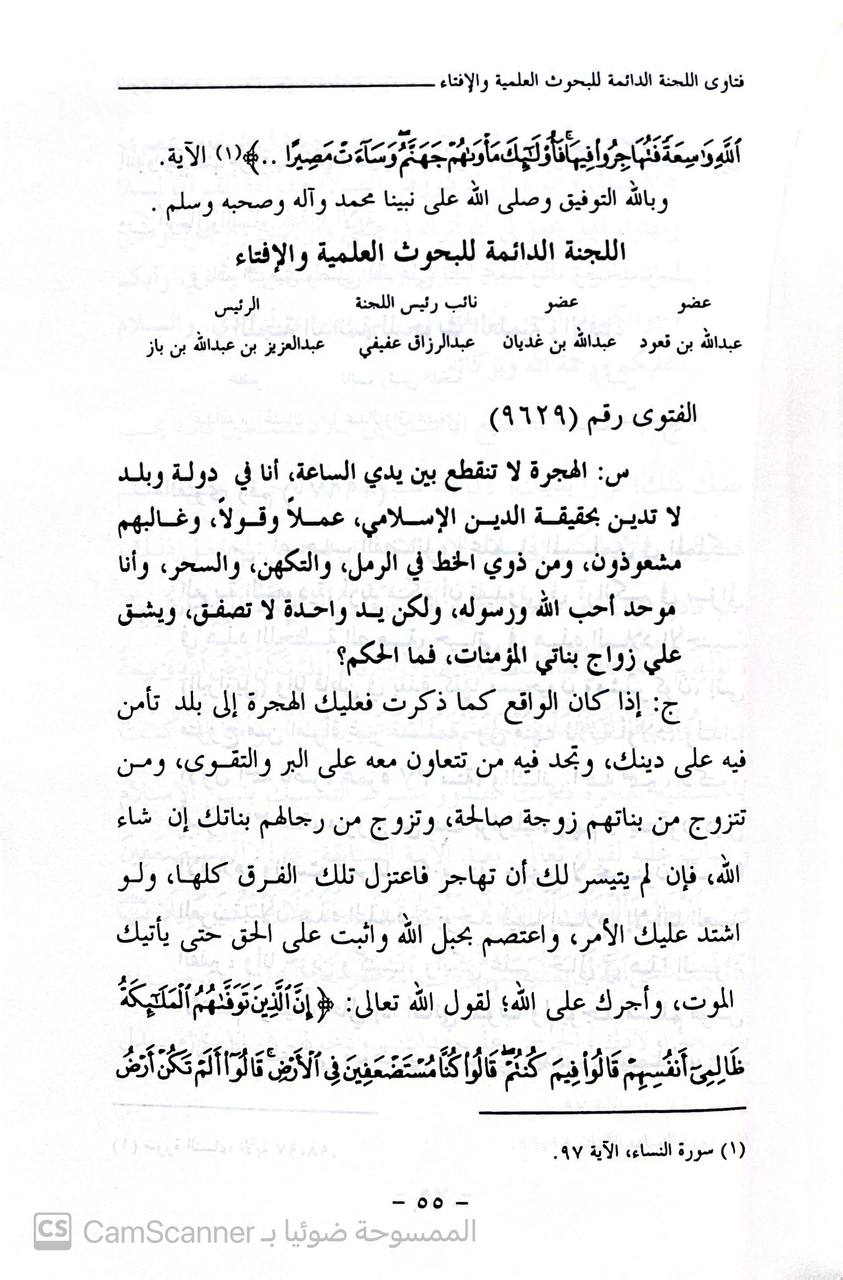 فتاوى اللجنة الدائمة للبحوث العلمية والإفتاء
ٱللَّهِ وَٰسِعَةً فَتُهَاجِرُوا۟ فِيهَا ۚ فَأُو۟لَـٰٓئِكَ مَأْوَىٰهُمْ جَهَنَّمُ ۖ وَسَآءَتْ مَصِيرًا ..﴾(١) الآية.
وبالله التوفيق وصلى الله على نبينا محمد وآله وصحبه وسلم .
اللجنة الدائمة للبحوث العلمية والإفتاء
عضو عضو نائب رئيس اللجنة الرئيس
عبدالله بن قعود عبدالله بن غديان عبدالرزاق عفيفي عبدالعزيز بن عبدالله بن باز
الفتوى رقم (٩٦٢٩)
س: الهجرة لا تنقطع بين يدي الساعة، أنا في دولة وبلد
لا تدين بحقيقة الدين الإسلامي، عملاً وقولاً، وغالبهم
مشعوذون، ومن ذوي الخط في الرمل، والتكهن، والسحر، وأنا
موحد أحب الله ورسوله، ولكن يد واحدة لا تصفق، ويشق
علي زواج بناتي المؤمنات، فما الحكم؟
ج: إذا كان الواقع كما ذكرت فعليك الهجرة إلى بلد تأمن
فيه على دينك، وتجد فيه من تتعاون معه على البر والتقوى، ومن
تتزوج من بناتهم زوجة صالحة، وتزوج من رجالهم بناتك إن شاء
الله، فإن لم يتيسر لك أن تهاجر فاعتزل تلك الفرق كلها، ولو
اشتد عليك الأمر، واعتصم بحبل الله واثبت على الحق حتى يأتيك
الموت، وأجرك على الله؛ لقول الله تعالى: ﴿إِنَّ ٱلَّذِينَ تَوَفَّىٰهُمُ ٱلْمَلَـٰٓئِكَةُ
ظَالِمِىٓ أَنفُسِهِمْ قَالُوا۟ فِيمَ كُنتُمْ ۖ قَالُوا۟ كُنَّا مُسْتَضْعَفِينَ فِى ٱلْأَرْضِ ۚ قَالُوٓا۟ أَلَمْ تَكُنْ أَرْضُ
(١) سورة النساء، الآية ٩٧.
- ٥٥ -
CS CamScanner الممسوحة ضوئيا بـ